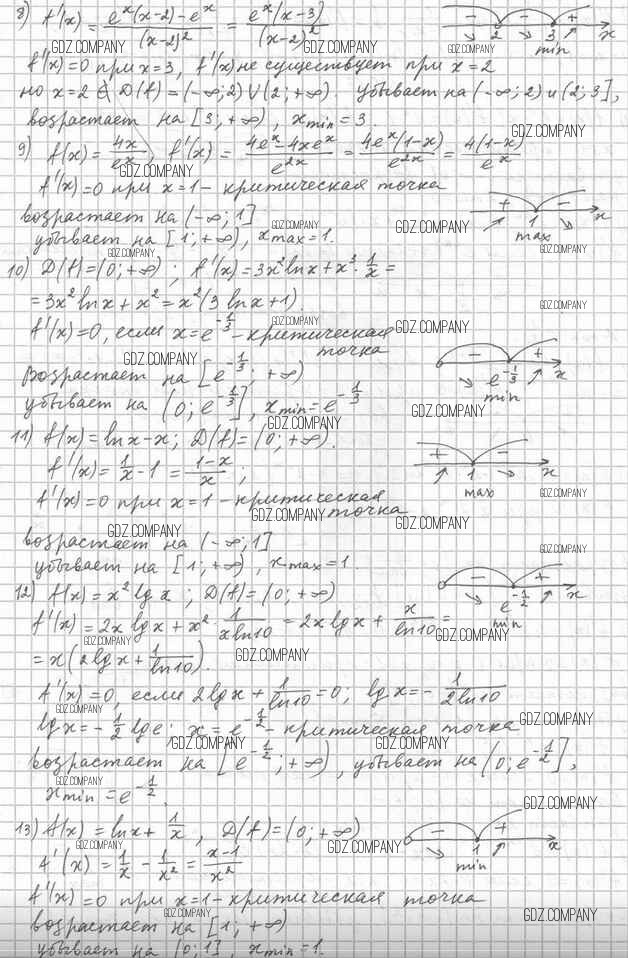 8) f'(x) = (e^x(x-2) - e^x)/(x-2)^2 = e^x(x-3)/(x-2)^2
- - + 2 3 min x
f'(x)=0 при x=3, f'(x) не существует при x=2
но x=2 ∉ D(f)=(-∞;2)∪(2;+∞). убывает на (-∞;2) и (2;3],
возрастает на [3;+∞), x min = 3.
9) f(x) = 4x/e^x, f'(x) = (4e^x - 4xe^x)/e^{2x} = 4e^x(1-x)/e^{2x} = 4(1-x)/e^x
f'(x)=0 при x=1 - критическая точка
+ - 1 max x
возрастает на (-∞;1]
убывает на [1;+∞), x max = 1.
10) D(f)=(0;+∞); f'(x)=3x^2 ln x + x^3 · 1/x =
= 3x^2 ln x + x^2 = x^2(3 ln x + 1)
f'(x)=0, если x=e^{-1/3} - критическая
точка
- + e^{-1/3} min x
возрастает на [e^{-1/3}; +∞)
убывает на (0; e^{-1/3}], x min = e^{-1/3}
11) f(x)=ln x - x; D(f)=(0;+∞).
f'(x) = 1/x - 1 = (1-x)/x;
+ - 1 max x
f'(x)=0 при x=1 - критическая
точка
возрастает на (-∞;1]
убывает на [1;+∞), x max = 1.
12) f(x)=x^2 lg x; D(f)=(0;+∞)
- + e^{-1/2} min x
f'(x)=2x lg x + x^2 · 1/(x ln 10) = 2x lg x + x/(ln 10) =
= x(2 lg x + 1/(ln 10)).
f'(x)=0, если 2 lg x + 1/(ln 10) = 0; lg x = - 1/(2 ln 10)
lg x = - 1/2 lg e; x = e^{-1/2} - критическая точка
возрастает на [e^{-1/2}; +∞), убывает на (0; e^{-1/2}],
x min = e^{-1/2}.
13) f(x)=ln x + 1/x, D(f)=(0;+∞)
- + 1 min x
f'(x) = 1/x - 1/x^2 = (x-1)/x^2
f'(x)=0 при x=1 - критическая точка
возрастает на [1;+∞)
убывает на (0;1], x min = 1.
GDZ.COMPANY